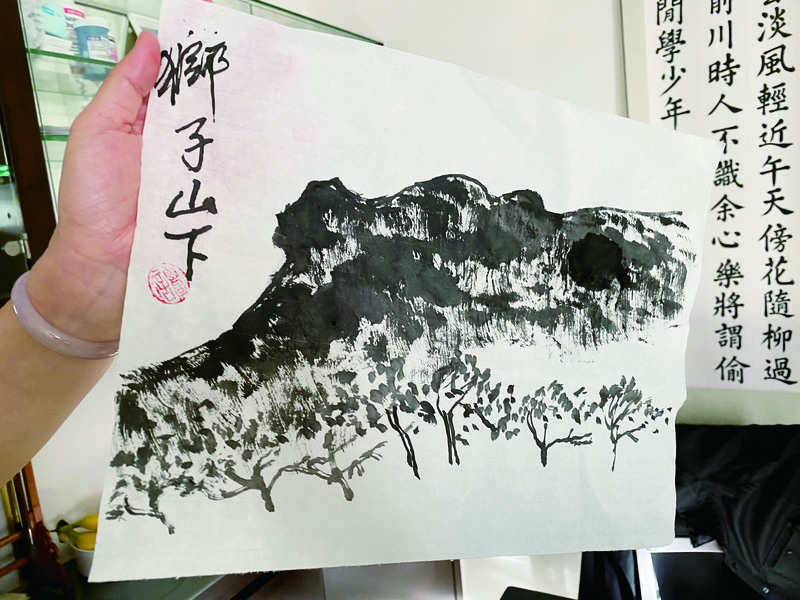 獅子山下
淡風輕近午天傍花隨柳過
前川時人不識余心樂將謂偷
閒學少年